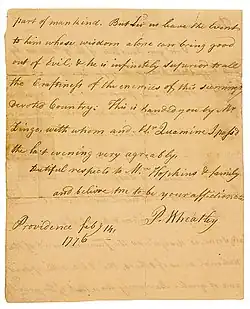 part of mankind. But Sir we leave the Event
to him whose wisdom alone can bring good
out of Evil, & he is infinitely superior to all
the Craftiness of the enemies of this seemingly
devoted Country: This is handed you by Mr
Lingo, with whom and Mr Quamine I pass'd
the last evening very agreably.
dutiful respects to Mrs Hopkins & family
and believe me to be your affectionate
P. Wheatley
Providence Feby 14,
1776